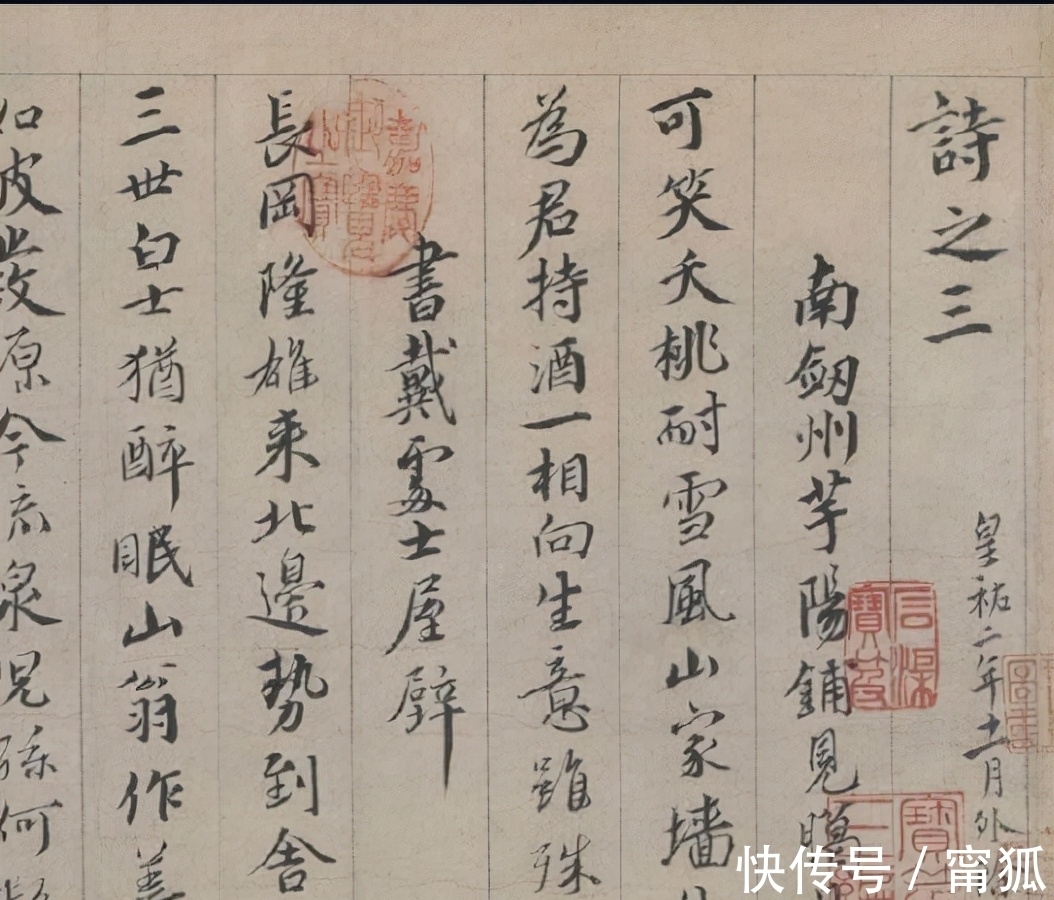 詩之三
皇祐二年十一月外
南劒州芋陽鋪見臘
可笑夭桃耐雪風山家墙
為君持酒一相向生意雖殊
書戴處士屋壁
長岡隆雄来北邊勢到舍
三世白士猶醉眠山翁作善
如皮
原今
泉児孫何
快传号 / 甯狐